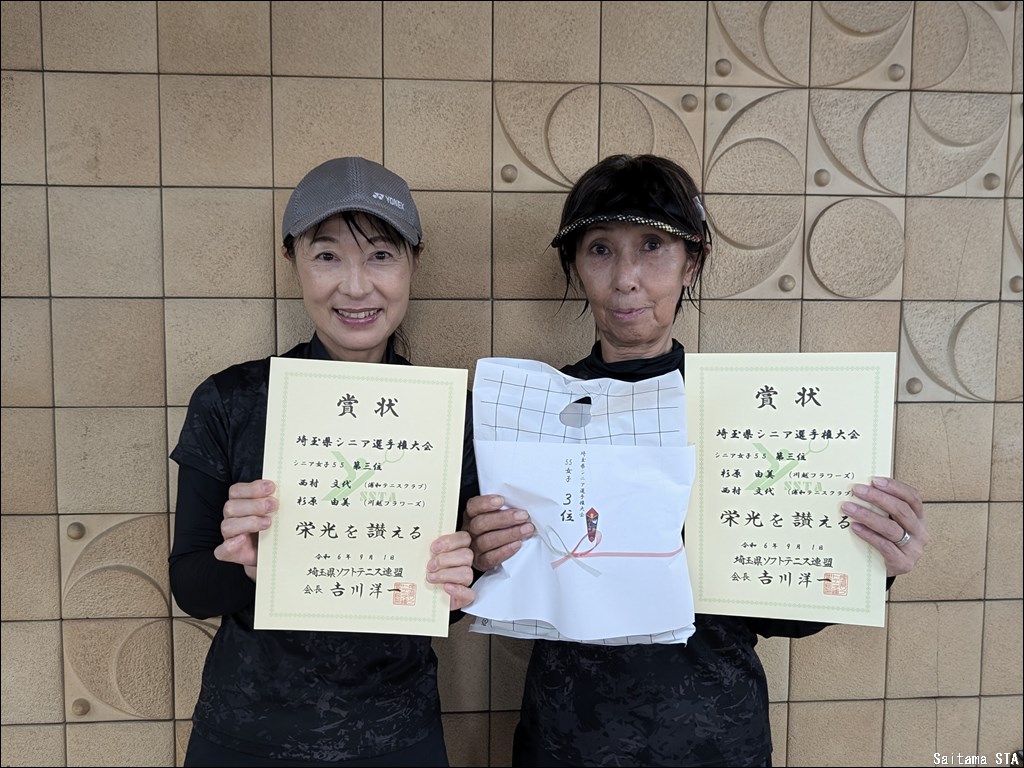 YONEX
賞状
埼玉県シニア選手権大会
シニア女子55 第三位
西村 文代 (浦和テニスクラブ)
杉原 由美 (川越フラワーズ)
SSTA
栄光を讃える
令和 6年 9月 1日
埼玉県ソフトテニス連盟
会長 吉川洋一
埼玉県シニア選手権大会
55女子
3位
賞状
埼玉県シニア選手権大会
シニア女子55 第三位
杉原 由美 (川越フラワーズ)
西村 文代 (浦和テニスクラブ)
SSTA
栄光を讃える
令和 6年 9月 1日
埼玉県ソフトテニス連盟
会長 吉川洋一
Saitama STA